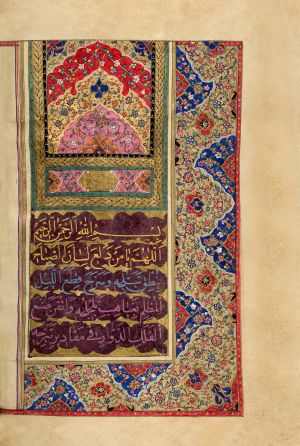 بسم الله الرحمن الرحيم
اللهم يا من دلع لسان الصباح
بنطق تبلجه وسرح قطع الليل
المظلم بغياهب تلجلجه واتقن صنع
الفلك الدوار في مقادير تبرجه